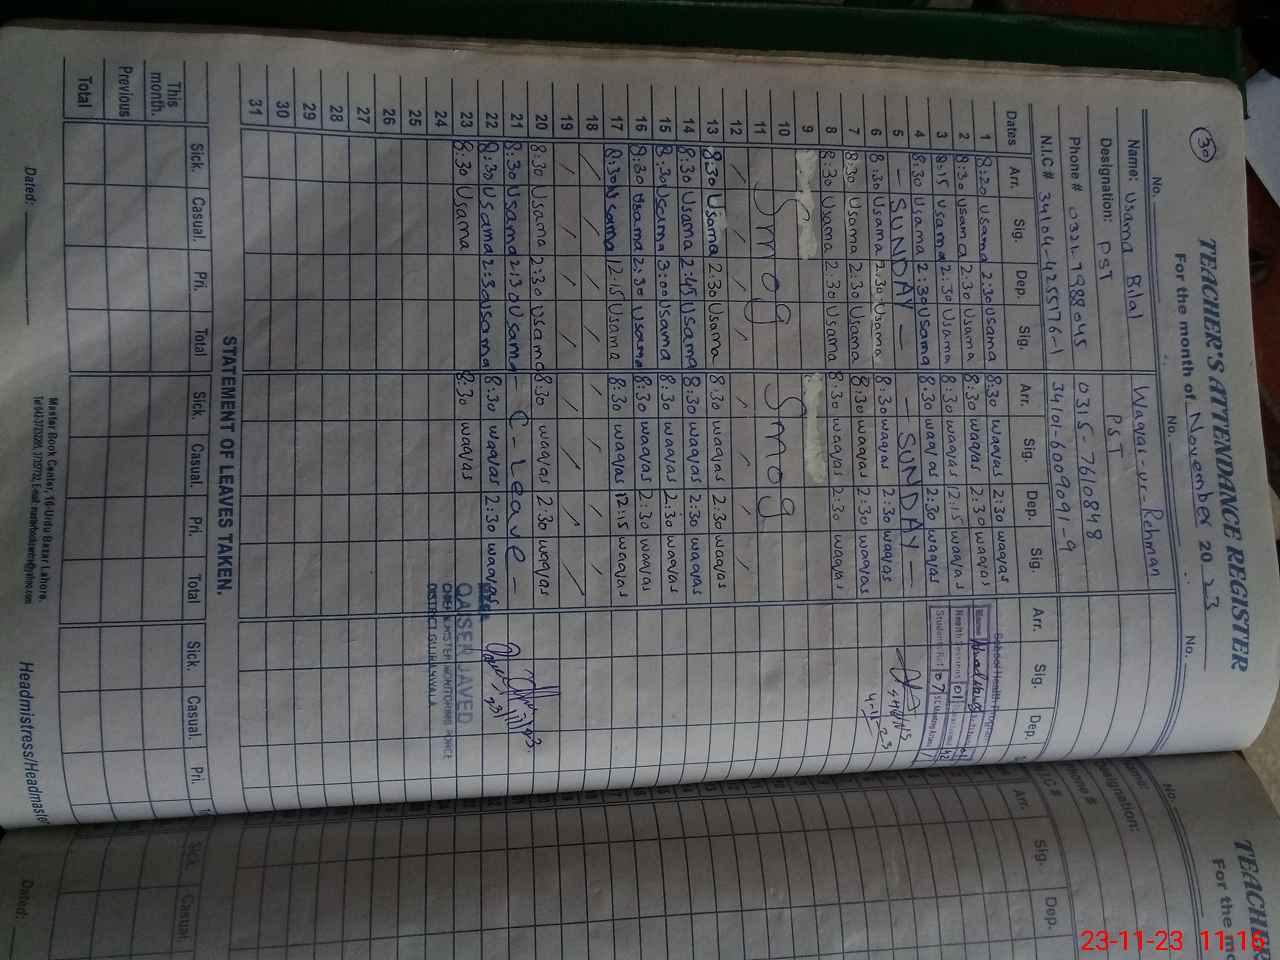 30
TEACHER'S ATTENDANCE REGISTER
For the month of November 2023
No. No. No.
Name: Usama Bilal Waqas-ur-Rehman
Designation: PST PST
Phone # 0321-7988045 0315-7610848
N.I.C# 34104-4255176-1 34101-6009091-9
Dates Arr. Sig. Dep. Sig. Arr. Sig. Dep. Sig. Arr. Sig. Dep.
1 8:20 Usama 2:30 Usama 8:30 waqas 2:30 waqas
2 8:30 Usama 2:30 Usama 8:30 waqas 2:30 waqas
3 8:15 Usama 2:30 Usama 8:30 waqas 12:15 waqas
4 8:30 Usama 2:30 Usama 8:30 waqas 2:30 waqas
5 - SUNDAY - - SUNDAY -
6 8:30 Usama 2:30 Usama 8:30 waqas 2:30 waqas
7 8:30 Usama 2:30 Usama 8:30 waqas 2:30 waqas
8 8:30 Usama 2:30 Usama 8:30 waqas 2:30 waqas
9
10 Smog Smog
11
12
13 8:30 Usama 2:30 Usama 8:30 waqas 2:30 waqas
14 8:30 Usama 2:45 Usama 8:30 waqas 2:30 waqas
15 8:30 Usama 3:00 Usama 8:30 waqas 2:30 waqas
16 8:30 Usama 2:30 Usama 8:30 waqas 2:30 waqas
17 8:30 Usama 12:15 Usama 8:30 waqas 12:15 waqas
18
19
20 8:30 Usama 2:30 Usama 8:30 waqas 2:30 waqas
21 8:30 Usama 2:30 Usama - C-Leave -
22 8:30 Usama 2:30 Usama 8:30 waqas 2:30 waqas
23 8:30 Usama 8:30 waqas
24
25
26
27
28
29
30
31
School Health
4-11-23
QAISER JAVED
MONITORING FORCE
DISTRICT GUJRANWALA
STATEMENT OF LEAVES TAKEN.
Sick. Casual. Pri. Total Sick. Casual. Pri. Total Sick. Casual. Pri.
This month.
Previous
Total
Master Book Center, 16-Urdu Bazar Lahore.
Dated: Headmistress/Headmaster
TEACHER
For the mo
No.
Designation:
Phone #
Arr. Sig. Dep.
Sick. Casual.
Dated:
23-11-23 11:16